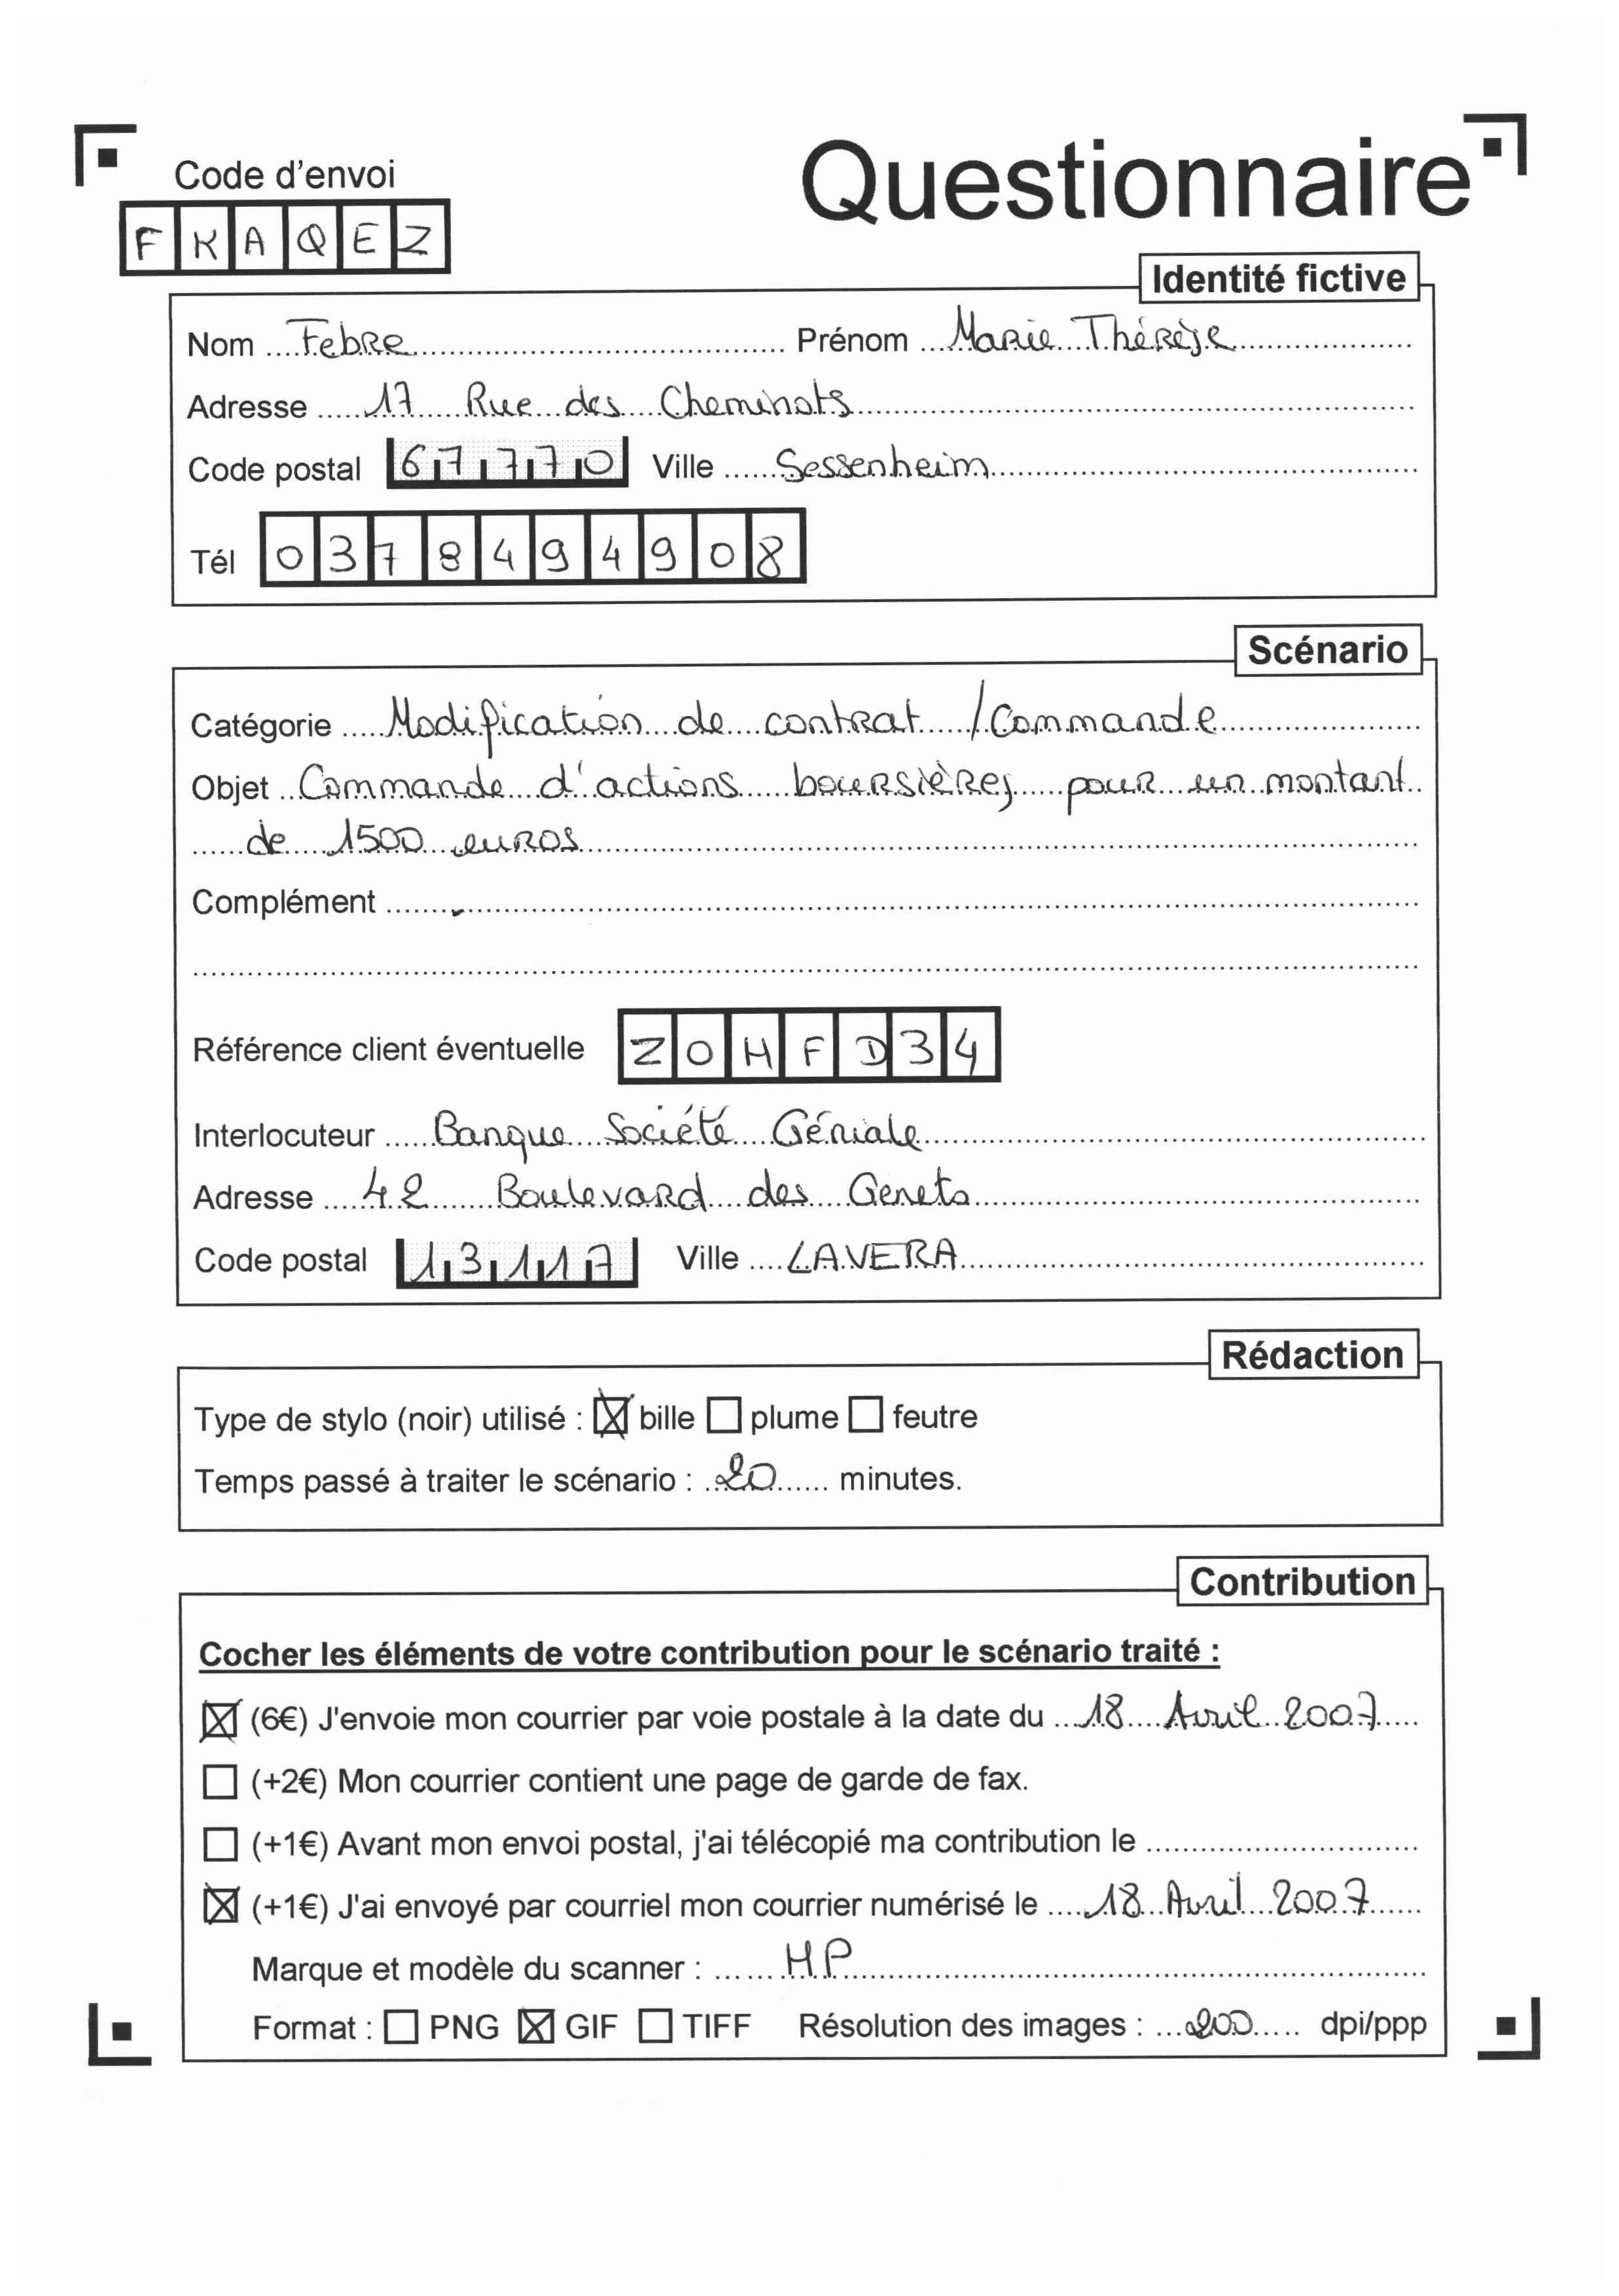 Questionnaire
Code d'envoi
FKAQEZ
Identité fictive
Nom Febre Prénom Marie Thérèse
Adresse 17 Rue des Cheminots
Code postal 67770 Ville Sessenheim
Tél 0378494908
Scénario
Catégorie Modification de contrat / Commande
Objet Commande d'actions boursières pour un montant
de 1500 euros
Complément
Référence client éventuelle ZOHFD34
Interlocuteur Banque Société Géniale
Adresse 42 Boulevard des Genets
Code postal 13117 Ville LAVERA
Rédaction
Type de stylo (noir) utilisé : ☒ bille ☐ plume ☐ feutre
Temps passé à traiter le scénario : 20 minutes.
Contribution
Cocher les éléments de votre contribution pour le scénario traité :
☒ (6€) J'envoie mon courrier par voie postale à la date du 18 Avril 2007
☐ (+2€) Mon courrier contient une page de garde de fax.
☐ (+1€) Avant mon envoi postal, j'ai télécopié ma contribution le
☒ (+1€) J'ai envoyé par courriel mon courrier numérisé le 18 Avril 2007
Marque et modèle du scanner : HP
Format : ☐ PNG ☒ GIF ☐ TIFF Résolution des images : 200 dpi/ppp